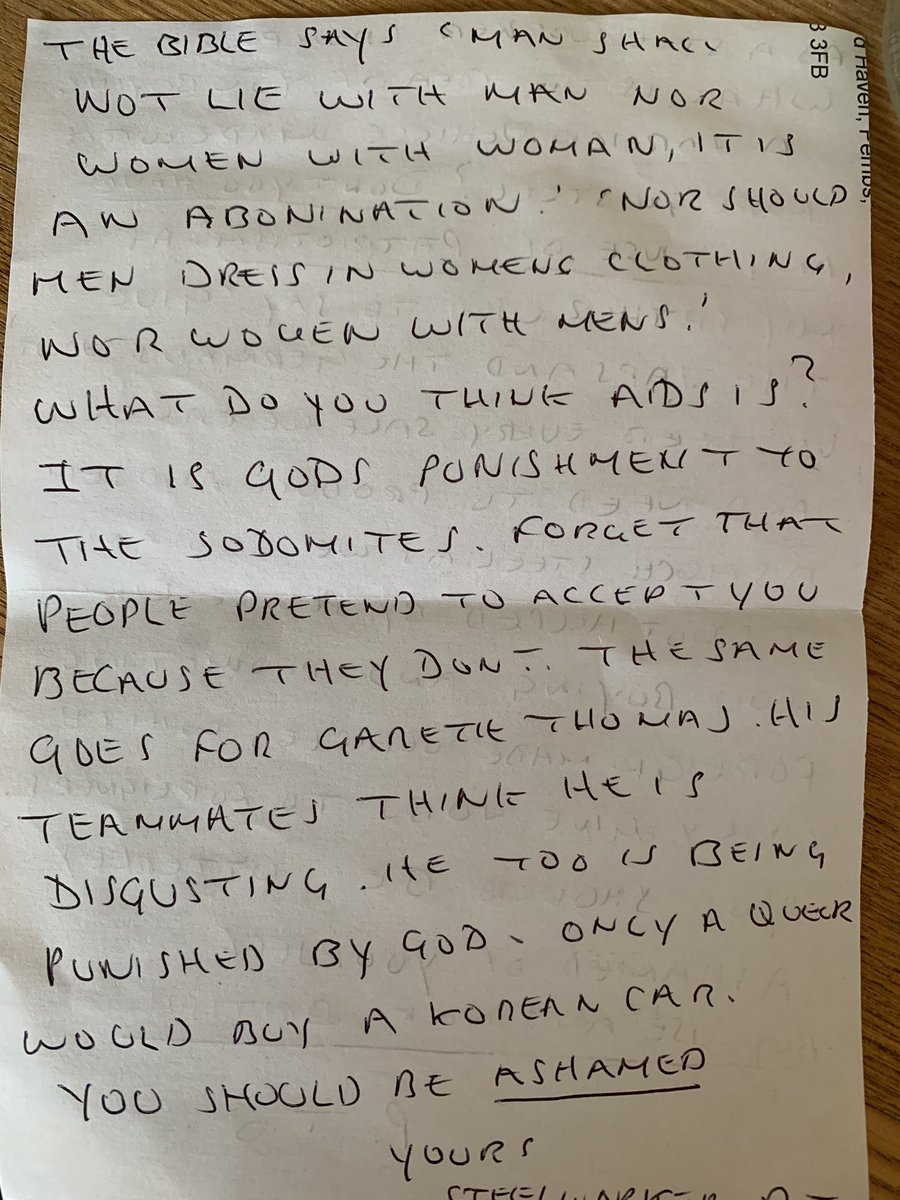 THE BIBLE SAYS 'MAN SHALL
NOT LIE WITH MAN NOR
WOMEN WITH WOMAN, IT IS
AN ABONINATION.' 'NOR SHOULD
MEN DRESS IN WOMENS CLOTHING,
NOR WOMEN WITH MENS.'
WHAT DO YOU THINK AIDS IS?
IT IS GODS PUNISHMENT TO
THE SODOMITES. FORGET THAT
PEOPLE PRETEND TO ACCEPT YOU
BECAUSE THEY DONT. THE SAME
GOES FOR GARETH THOMAS. HIS
TEAMMATES THINK HE IS
DISGUSTING. HE TOO IS BEING
PUNISHED BY GOD. ONLY A QUEER
WOULD BUY A KOREAN CAR.
YOU SHOULD BE ASHAMED
YOURS
STEELWORKER
d Haven, Pembs,
3 3FB